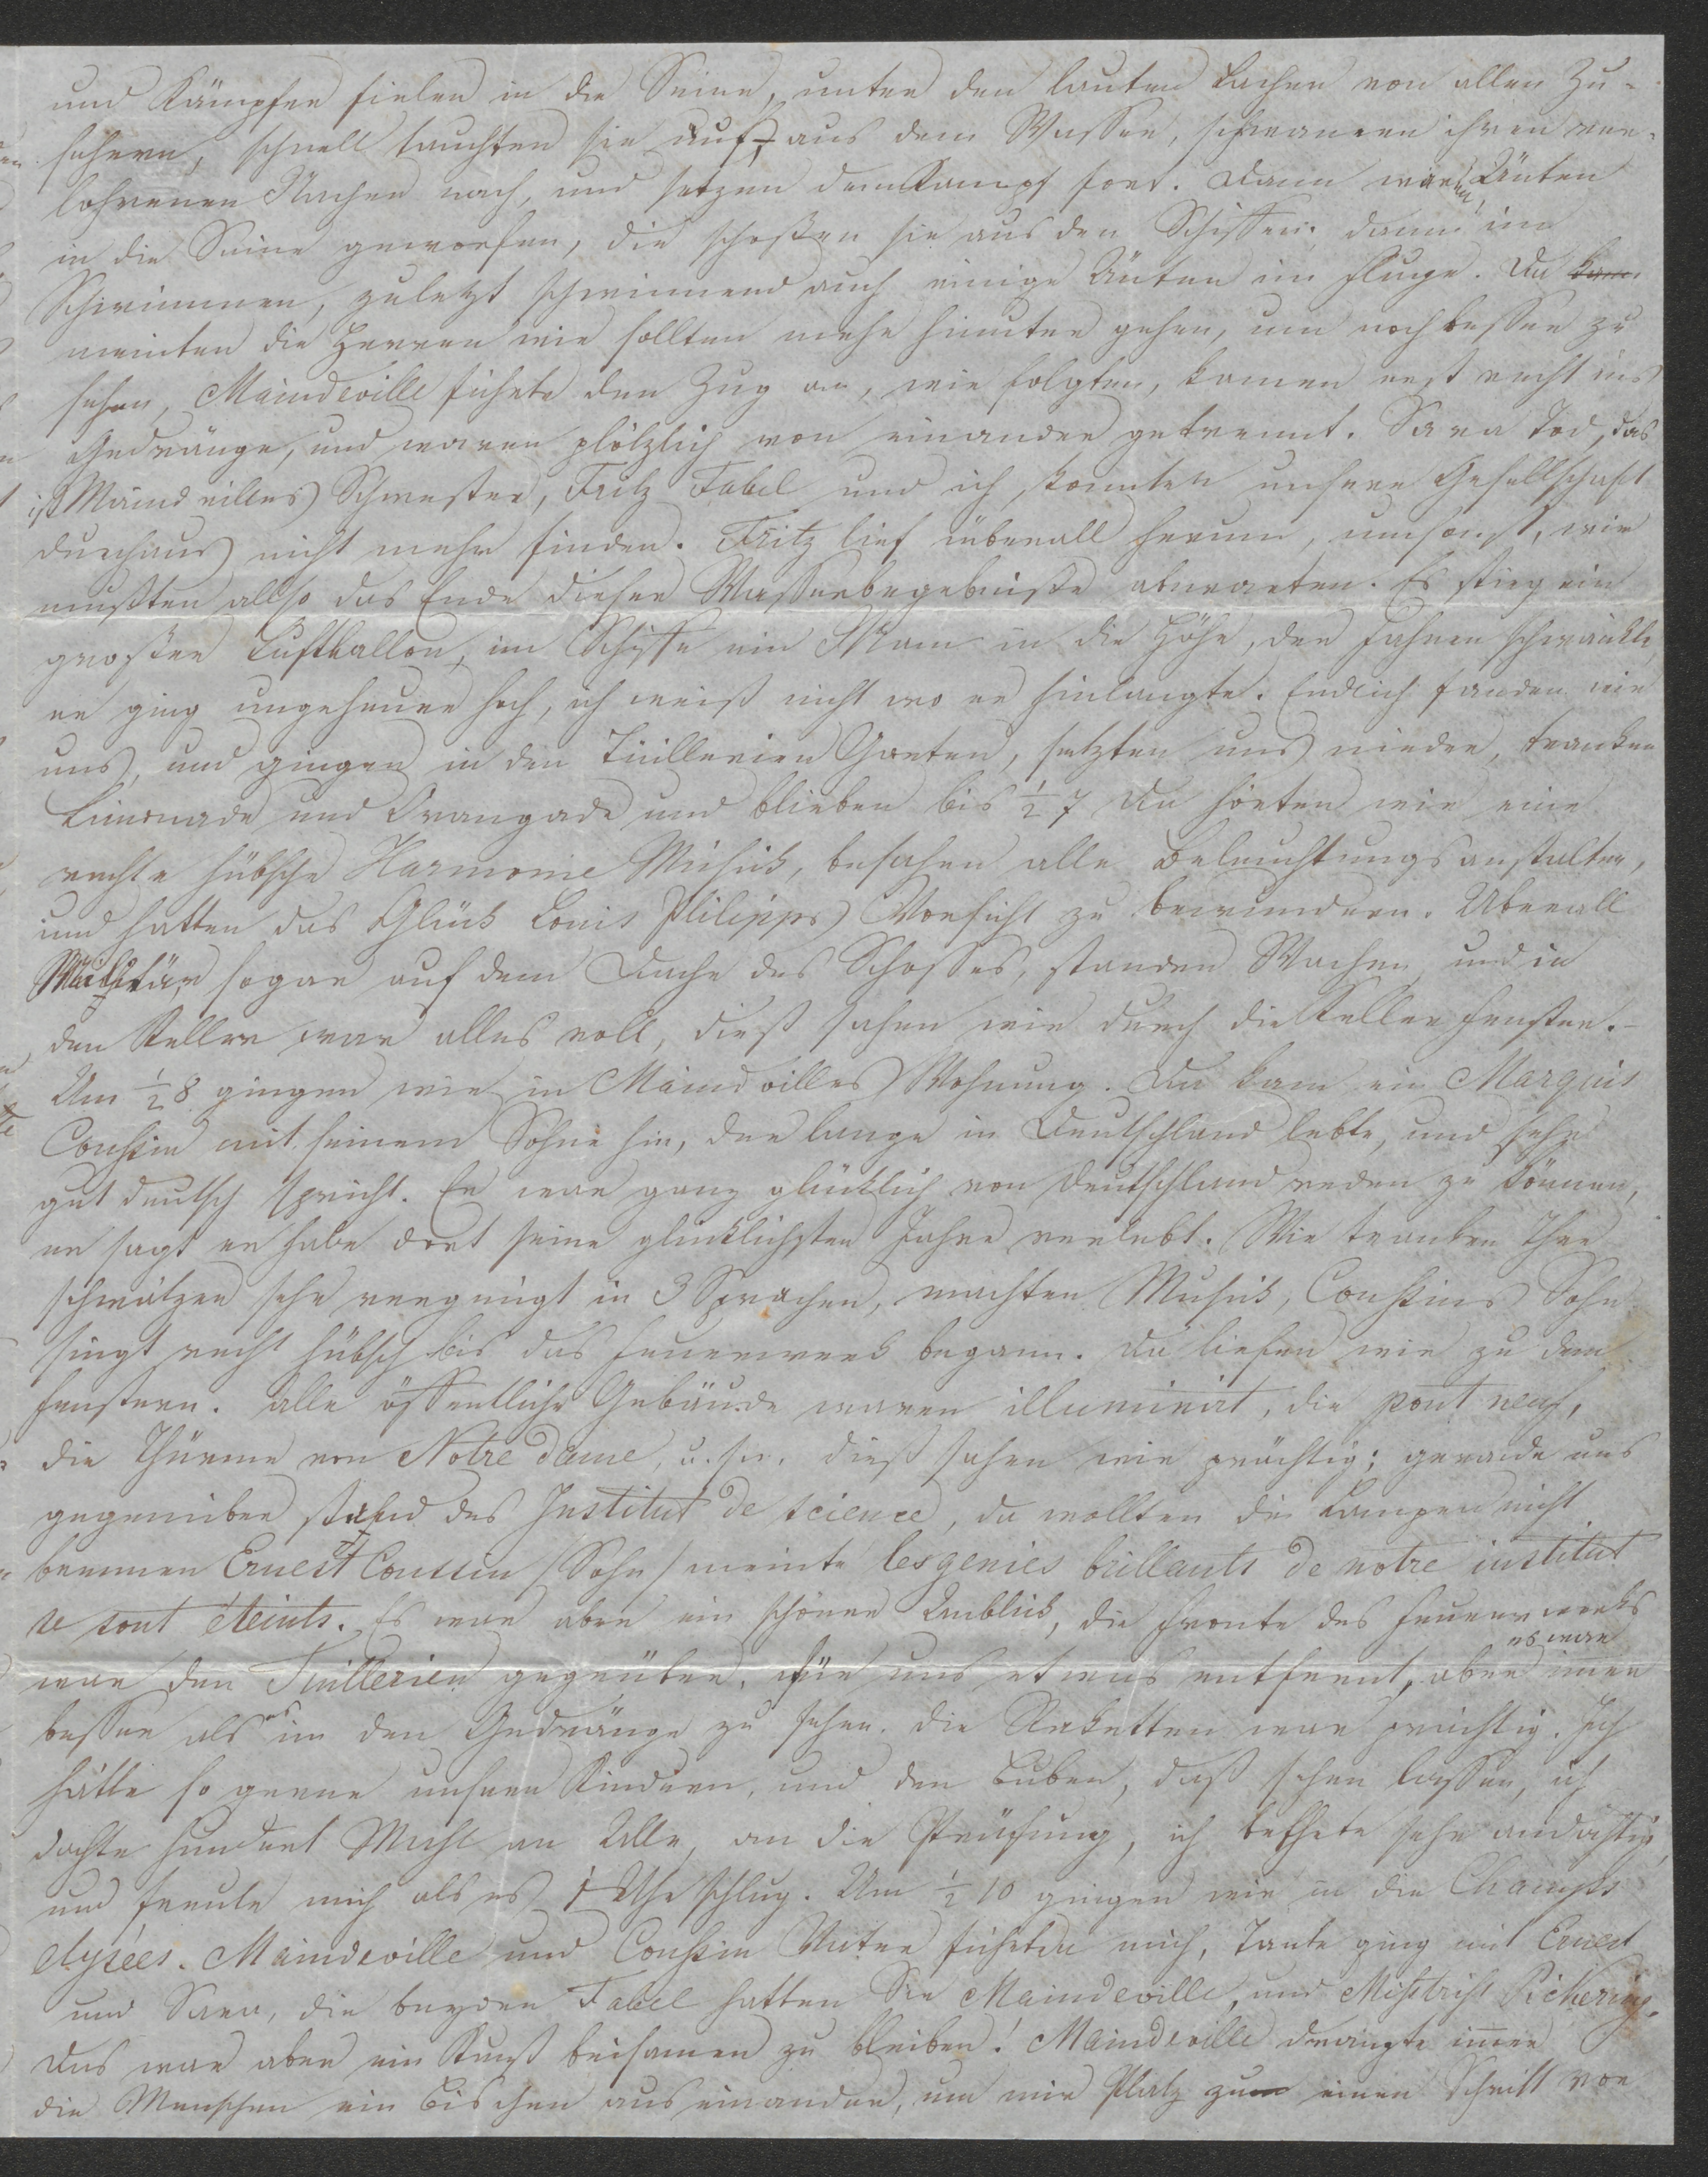 und Kämpfer fielen in die Seine, unter den lauten Lachen von allen Zu-
sehern, schnell tauchten sie auf, aus dem Wasser, schwamen ihren ver-
lohrenen Nachen nach, und setzen den Kampf fort. Dann wurden Änten
in die Seine geworfen, die schoßen sie aus den Schiffen, dann im
Schwimmen, zuletzt schwimmend auch einige Änten im Fluge. Da kam
meinten die Herren wir sollten mehr hinunter gehen, um noch besser zu
sehen, Maindeville führte den Zug an, wir folgten, kamen erst recht ins
Gedränge, und waren plötzlich von einander getrennt. Sara Tod, das
ist Maindvilles Schwester, Fritz Fabel und ich, konnten unsere Gesellschaft
durchaus nicht mehr finden. Fritz lief überall herum, umsonst, wir
mußten also das Ende dieser Wasserbegebniße abwarten. Es stieg ein
großer Luftballon, im Schiffe ein Mann in die Höhe, der Fahnen schwänkte,
er ging ungeheuer hoch, ich weiß nicht wo er hinlangte. Endlich fanden wir
uns, und gingen in den Tuillerien Garten, setzten uns nieder, tranken
Limonade und Orangade und blieben bis ½ 7 Da hörten wir eine
recht hübsche Harmonie Musick, besahen alle Beleuchtungsanstalten,
und hatten das Glück Louis Philipps Vorsicht zu bewundern. Überall
Militär, sogar auf dem Dache des Schosses, standen Wachen, und in
den Keller war alles voll, dieß sahen wir durch die Keller fenster. -
Um ½ 8 gingen wir in Maindvilles Wohnung. Da kam ein Marquis
Conßin mit seinem Sohne hin, der lange in Deutschland lebte, und sehr
gut deutsch spricht. Er war ganz glücklich von Deutschland reden zu können,
er sagt er habe dort seine glücklichsten Jahre verlebt. Wir tranken Thee
schwätzen sehr vergnügt in 3 Sprachen, machten Musick, Conßins Sohn
singt recht hübsch bis das Feuerwerk begann. Da liefen wir zu den
Fenstern. Alle öffentliche Gebäude waren illuminirt, die pont neuf,
die Thürme von Notre dame, u.s.w. dieß sahen wir prächtig; gerade uns
gegenüber stand das Institut de science, da wollten die Lampen nicht
brennen Ernest Conssin /Sohn/ meinte les genies brillants de notre institut
se sont éteints. Es war aber ein schöner Anblick, die Fronte des Feuerwerks
war den Tuillerien gegenüber, für uns etwas entfernt, aber es war imer
besser als es in den Gedränge zu sehen. Die Raketten war prächtig. Ich
hätte so gerne unsern Kindern, und den Buben, daß sehen lassen, ich
dachte hundert Mahl an Alle, an die Prüfung, ich bethete sehr andächtig,
und freute mich als es 1 Uhr schlug. Um ½ 10 gingen wir in die Champs
elysées. Maindeville und Conßin Vater führten mich, Tante ging mit Ernest
und Sara, die beyden Fabel hatten Die Maindeville, und Mißtriß Pickering.
Das war aber ein Kunst beisamen zu bleiben! Maindeville drängte imer
die Menschen ein Bischen auseinander, um mir Platz zu einen Schritt vor